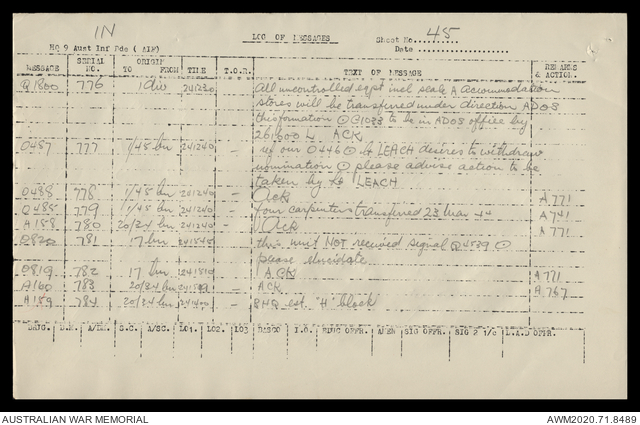 IN
LOG OF MESSAGES
Sheet No. 45
HQ 9 Aust Inf Bde (AIF)
Date
MESSAGE SERIAL NO. ORIGIN TO FROM TIME T.O.R. TEXT OF MESSAGE REMARKS & ACTION.
Q1800 776 1 div 241230 All uncontrolled eqpt incl scale A Accommodation
stores will be transferred under direction ADOS
this formation to be in ADOS office by
261800 L ACK
O487 777 1/45 bn 241240 - our O446 LEACH desires to withdraw
nomination please advise action to be
taken by LEACH
O488 778 1/45 bn 241240 - Ack A 771
779 1/45 bn 241240 - four carpenters transferred 23 Mar 44 A 741
A158 780 20/34 bn 241240 - Ack A 771
781 17 bn - this unit NOT received signal
please elucidate
O819 782 17 bn 241810 - ACK A 771
A160 783 20/34 bn - ACK A 767
A159 784 20/34 bn 241400 - BHQ est "H" block
S.C. A/SC. LO1. LO2. LO3 I.O. SIG OFFR. L.A.D OFFR.
AUSTRALIAN WAR MEMORIAL
AWM2020.71.8489